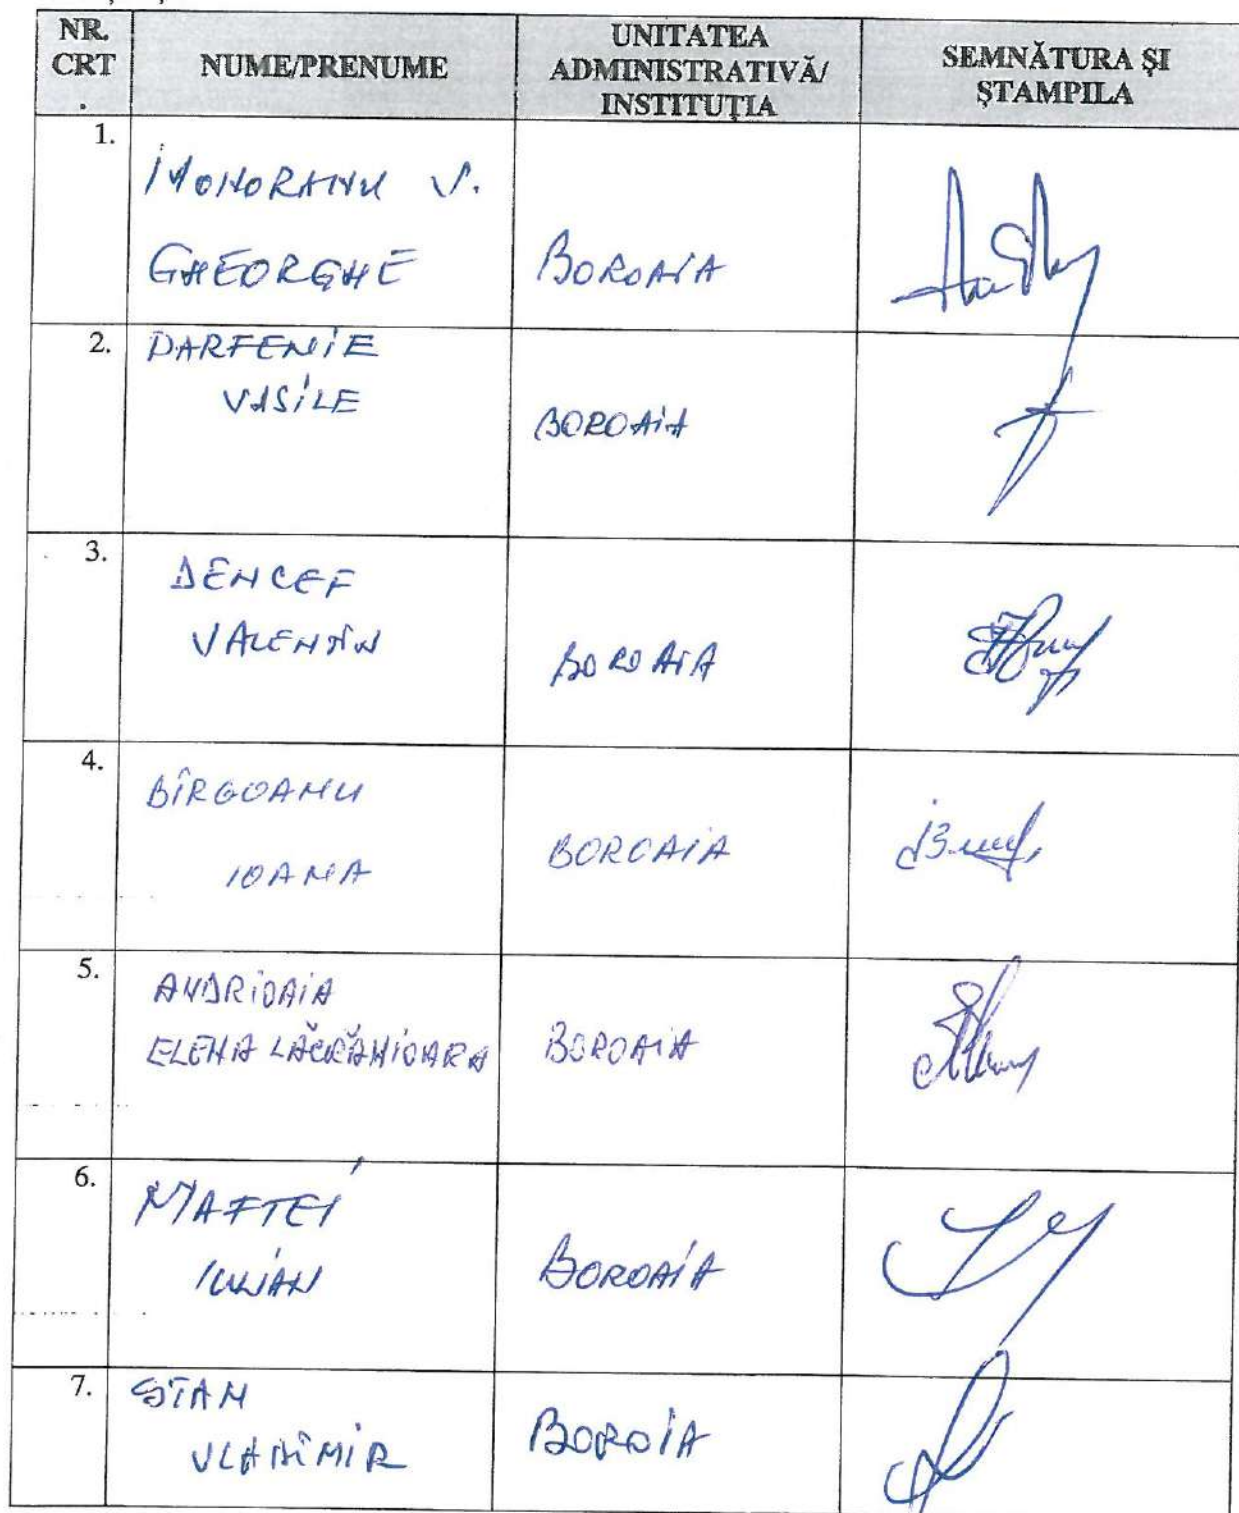 NR.
CRT
.
NUME/PRENUME
UNITATEA
ADMINISTRATIVĂ/
INSTITUȚIA
SEMNĂTURA ȘI
ȘTAMPILA
1.
V.
GHEORGHE
BOROAIA
2.
PARFENIE
VASILE
BOROAIA
3.
DENCEF
VALENTIN
BOROAIA
4.
BÎRGOANU
IOANA
BOROAIA
5.
ANDRIOAIA
ELENA LĂCRĂMIOARA
BOROAIA
6.
MAFTEI
IULIAN
BOROAIA
7.
STAN
VLADIMIR
BOROIA